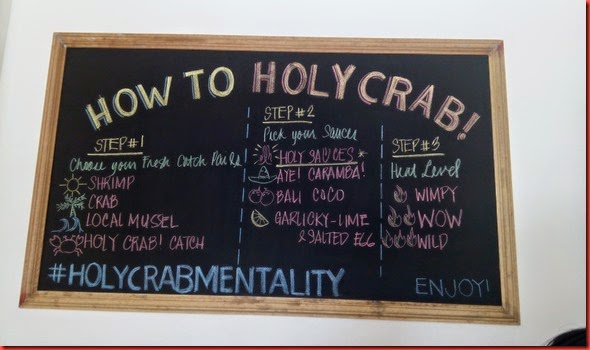 HOW TO HOLY CRAB!
STEP #1
Choose your Fresh Catch
SHRIMP
CRAB
LOCAL MUSSEL
HOLY CRAB! CATCH
STEP #2
Pick your Sauces
HOLY SAUCES *
AYE! CARAMBA!
BALI COCO
GARLICKY-LIME
& SALTED EGG
STEP #3
Heat Level
WIMPY
WOW
WILD
#HOLYCRABMENTALITY
ENJOY!